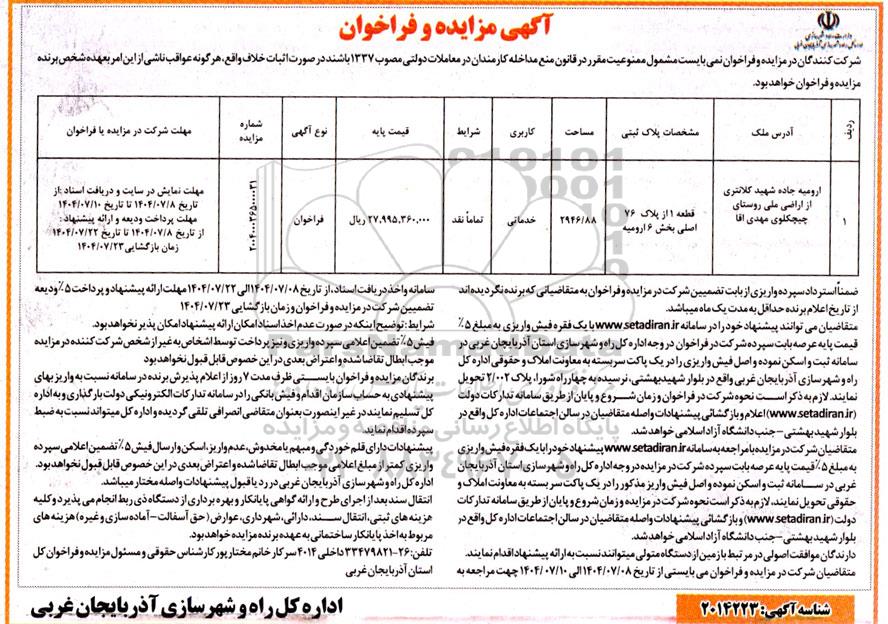 آگهی مزایده و فراخوان
شرکت کنندگان در مزایده و فراخوان نمی بایست مشمول ممنوعیت مقرر در قانون منع مداخله کارمندان در معاملات دولتی مصوب ۱۳۳۷ باشند در صورت اثبات خلاف واقع، هرگونه عواقب ناشی از این امر بعهده شخص برنده
مزایده و فراخوان خواهد بود.
ردیف آدرس ملک مشخصات پلاک ثبتی مساحت کاربری شرایط قیمت پایه نوع آگهی شماره مزایده مهلت شرکت در مزایده یا فراخوان
۱ ارومیه جاده شهید کلانتری از اراضی ملی روستای چیچکلوی مهدی اقا قطعه ۱ از پلاک ۷۶ اصلی بخش ۶ ارومیه ۲۹۴۶/۸۸ خدماتی تماماً نقد ۲۷,۹۹۵,۳۶۰,۰۰۰ ریال فراخوان ۲۰۰۴۰۰۰۳۶۵۰۰۰۰۳۱
مهلت نمایش در سایت و دریافت اسناد: از
تاریخ ۱۴۰۴/۰۷/۸ تا تاریخ ۱۴۰۴/۰۷/۱۰
مهلت پرداخت ودیعه و ارائه پیشنهاد:
از تاریخ ۱۴۰۴/۰۷/۸ تا تاریخ ۱۴۰۴/۰۷/۲۲
زمان بازگشایی ۱۴۰۴/۰۷/۲۳
ضمناً استرداد سپرده واریزی از بابت تضمیین شرکت در مزایده و فراخوان به متقاضیانی که برنده نگردیده اند
از تاریخ اعلام برنده حداقل به مدت یک ماه میباشد.
متقاضیان می توانند پیشنهاد خود را در سامانه www.setadiran.ir با یک فقره فیش واریزی به مبلغ ۵٪
قیمت پایه عرصه بابت سپرده شرکت در فراخوان در وجه اداره کل راه و شهرسازی استان آذربایجان غربی در
سامانه ثبت و اسکن نموده و اصل فیش واریزی را در یک پاکت سربسته به معاونت املاک و حقوقی اداره کل
راه و شهرسازی آذربایجان غربی واقع در بلوار شهید بهشتی، نرسیده به چهارراه شورا، پلاک ۷۲۰۲ تحویل
نمایند. لازم به ذکر است نحوه شرکت در فراخوان و زمان شروع و پایان از طریق سامانه تدارکات دولت
(www.setadiran.ir) اعلام و بازگشائی پیشنهادات واصله متقاضیان در سالن اجتماعات اداره کل واقع در
بلوار شهید بهشتی –جنب دانشگاه آزاد اسلامی خواهد شد.
متقاضیان شرکت در مزایده با مراجعه به سامانه www.setadiran.ir پیشنهاد خود را با یک فقره فیش واریزی
به مبلغ ۵٪ قیمت پایه عرصه بابت سپرده شرکت در مزایده در وجه اداره کل راه و شهرسازی استان آذربایجان
غربی در سامانه ثبت و اسکن نموده و اصل فیش واریز مذکور را در یک پاکت سربسته به معاونت املاک و
حقوقی تحویل نمایند، لازم به ذکر است نحوه شرکت در مزایده و زمان شروع و پایان از طریق سامانه تدارکات
دولت (www.setadiran.ir) و بازگشائی پیشنهادات واصله متقاضیان در سالن اجتماعات اداره کل واقع در
بلوار شهید بهشتی –جنب دانشگاه آزاد اسلامی خواهد شد.
دارندگان موافقت اصولی در مرتبط بازمین از دستگاه متولی میتوانند نسبت به ارائه پیشنهاد اقدام نمایند.
متقاضیان شرکت در مزایده و فراخوان می بایستی از تاریخ ۱۴۰۴/۰۷/۰۸ الی ۱۴۰۴/۰۷/۱۰ جهت مراجعه به
سامانه واخذ دریافت اسناد، از تاریخ ۱۴۰۴/۰۷/۰۸ الی ۱۴۰۴/۰۷/۲۲ مهلت ارائه پیشنهاد و پرداخت ۵٪ ودیعه
تضمیین شرکت در مزایده و فراخوان و زمان بازگشایی ۱۴۰۴/۰۷/۲۳
شرایط: توضیح اینکه در صورت عدم اخذ اسناد امکان ارائه پیشنهاد امکان پذیر نخواهد بود.
فیش ۵٪ تضمین اعلامی سپرده واریزی و نیز پرداخت توسط اشخاص به غیر از شخص شرکت کننده در مزایده
موجب ابطال تقاضا شده و اعتراض بعدی در این خصوص قابل قبول نخواهد بود
برندگان مزایده و فراخوان بایستی ظرف مدت ۷ روز از اعلام پذیرش برنده در سامانه نسبت به واریز بهای
پیشنهادی به حساب سازمان اقدام و فیش بانکی را در سامانه تدارکات الکترونیکی دولت بارگذاری و به اداره
کل تسلیم نمایند در غیر اینصورت بعنوان متقاضی انصرافی تلقی گردیده و اداره کل میتواند نسبت به ضبط
سپرده اقدام نماید.
پیشنهادات دارای قلم خوردگی و مبهم یا مخدوش، عدم واریز، اسکن و ارسال فیش ۵٪ تضمین اعلامی سپرده
واریزی کمتر از مبلغ اعلامی موجب ابطال تقاضا شده و اعتراض بعدی در این خصوص قابل قبول نخواهد بود.
اداره کل راه و شهرسازی آذربایجان غربی در رد یا قبول پیشنهادات واصله مختار میباشد.
انتقال سند بعد از اجرای طرح و ارائه گواهی پایانکار و بهره برداری از دستگاه ذی ربط انجام می پذیرد و کلیه
هزینه های ثبتی، انتقال سند، دارائی، شهرداری، عوارض (حق آسفالت–آماده سازی و غیره) هزینه های
مربوط به اخذ پایانکار ساختمانی به عهده برنده مزایده خواهد بود.
تلفن: ۲۶-۳۳۴۷۹۸۲۱ داخلی ۴۰۱۴ سرکار خانم مختارپور کارشناس حقوقی و مسئول مزایده و فراخوان کل
استان آذربایجان غربی
شناسه آگهی: ۲۰۱۴۲۲۳
اداره کل راه و شهرسازی آذربایجان غربی